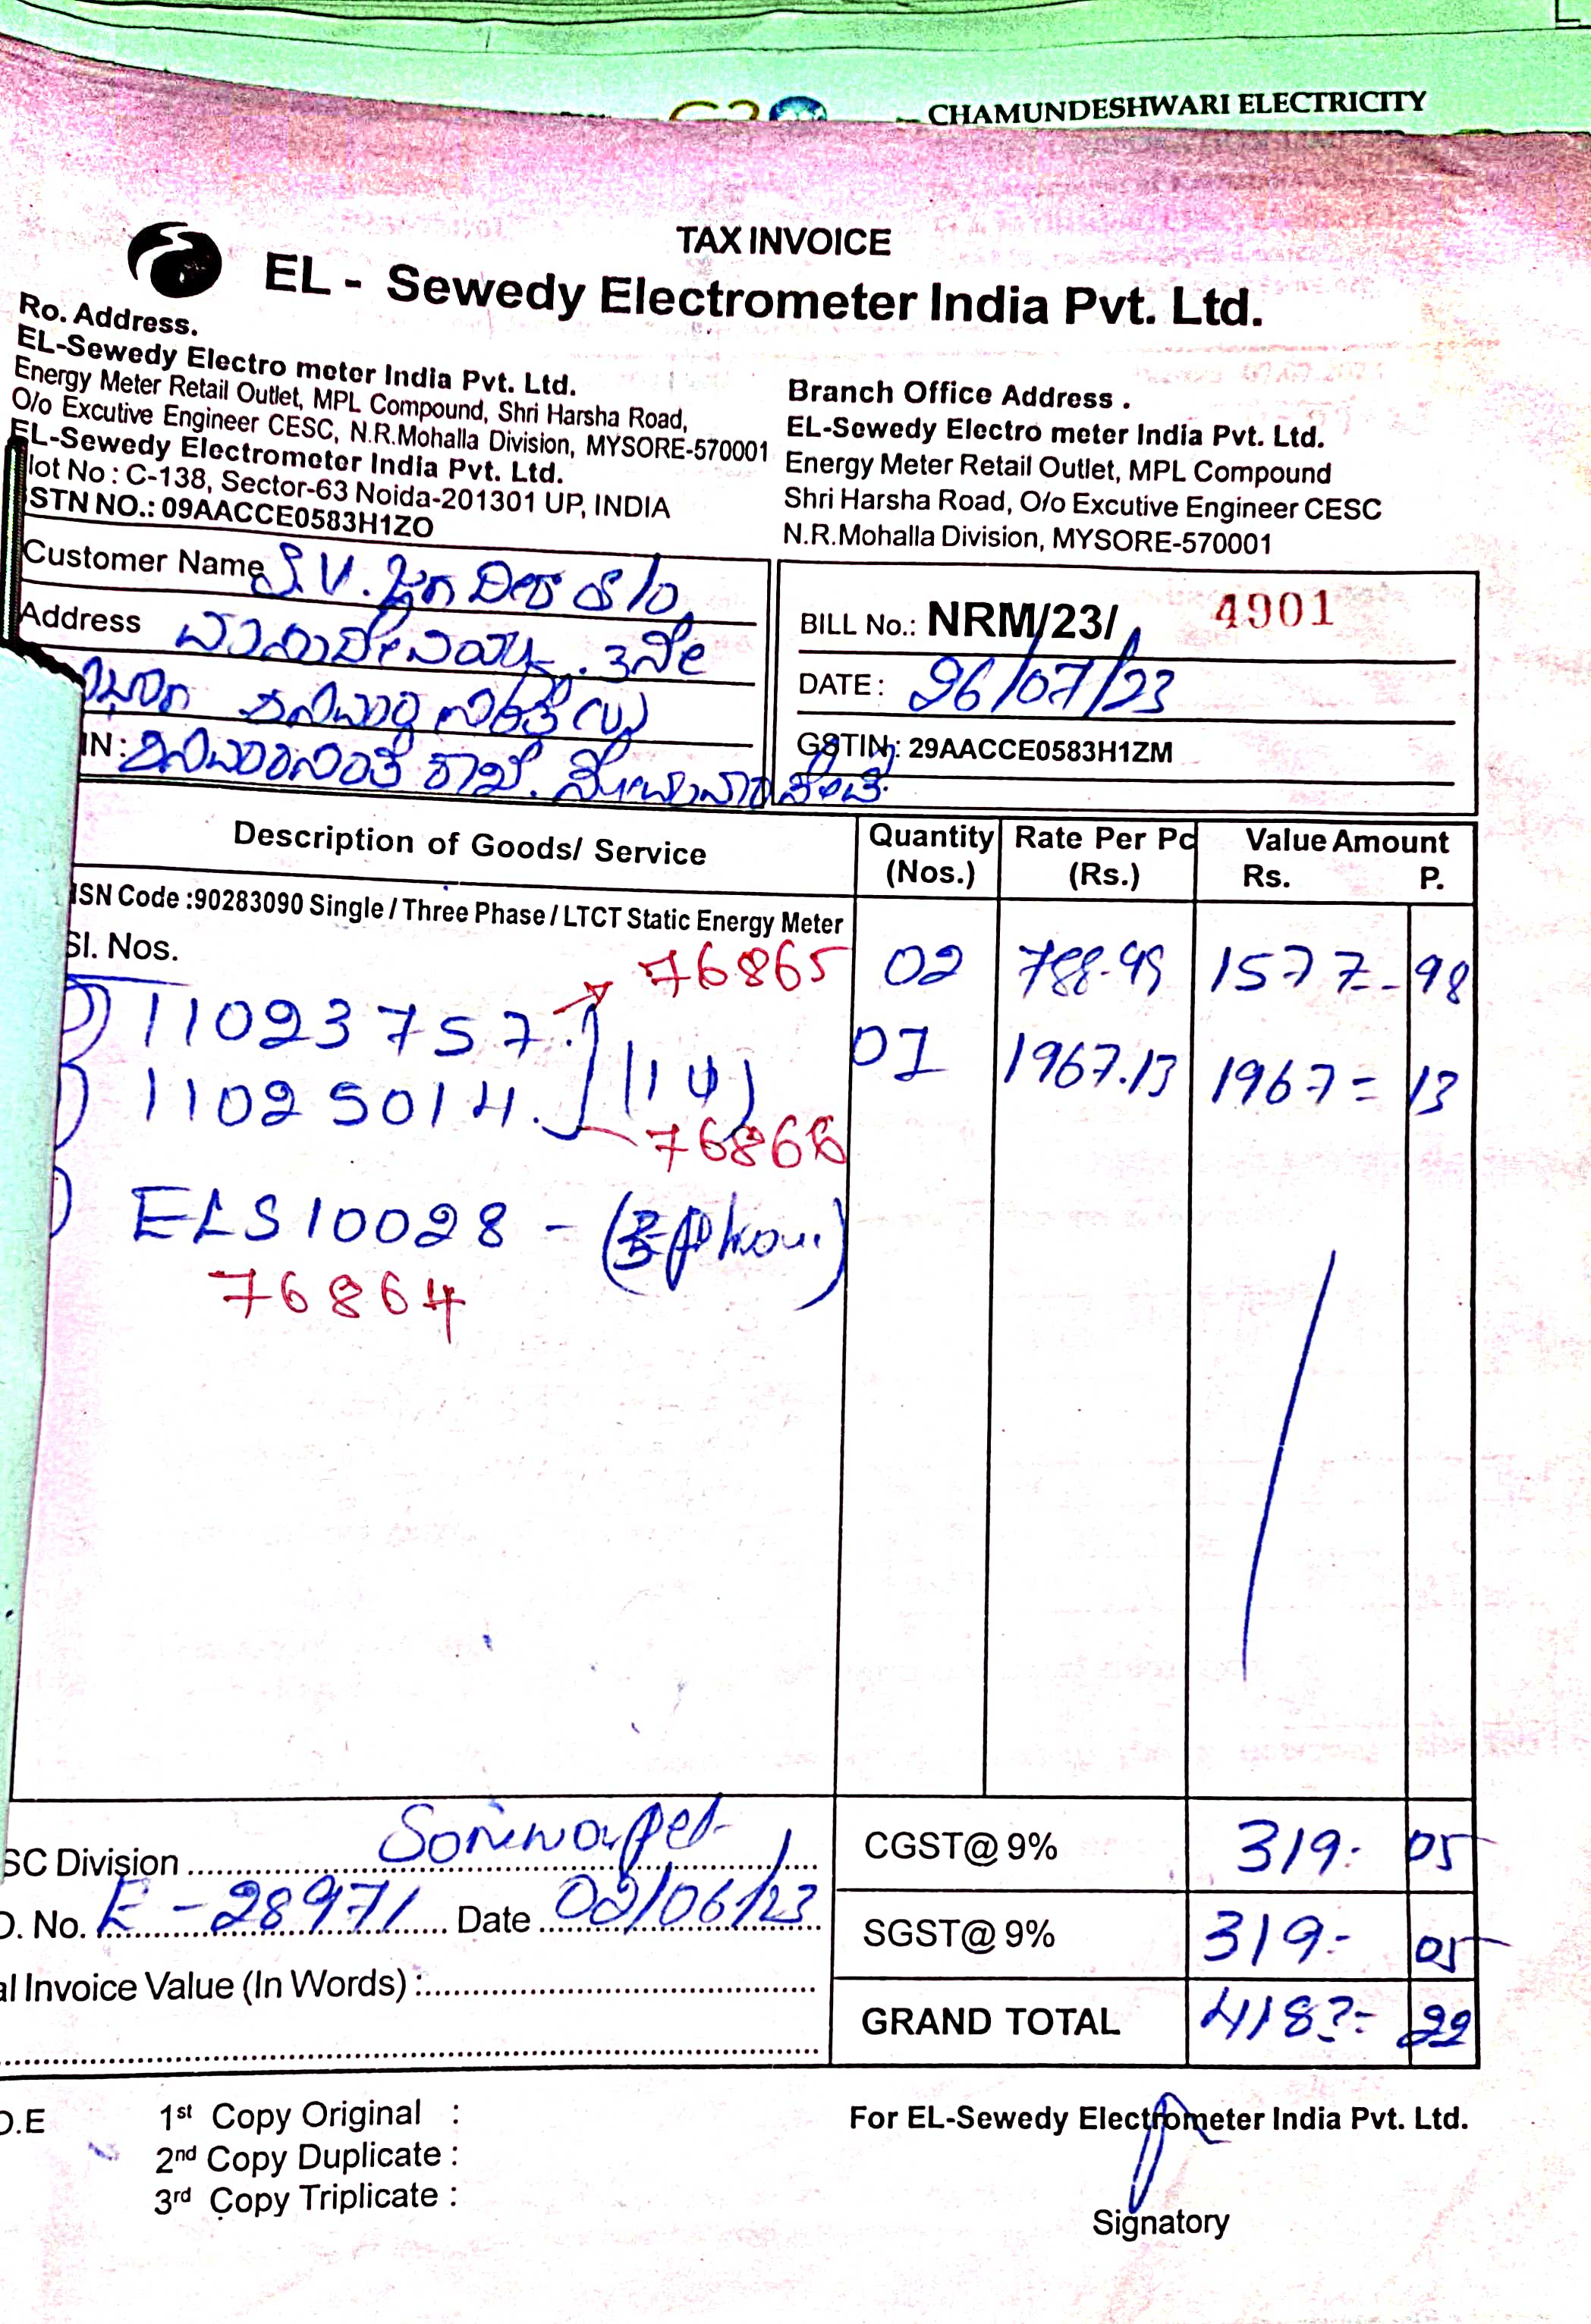 CHAMUNDESHWARI ELECTRICITY
TAX INVOICE
EL - Sewedy Electrometer India Pvt. Ltd.
Ro. Address.
EL-Sewedy Electro meter India Pvt. Ltd.
Energy Meter Retail Outlet, MPL Compound, Shri Harsha Road,
O/o Excutive Engineer CESC, N.R.Mohalla Division, MYSORE-570001
EL-Sewedy Electrometer India Pvt. Ltd.
lot No : C-138, Sector-63 Noida-201301 UP, INDIA
STN NO.: 09AACCE0583H1ZO
Branch Office Address .
EL-Sewedy Electro meter India Pvt. Ltd.
Energy Meter Retail Outlet, MPL Compound
Shri Harsha Road, O/o Excutive Engineer CESC
N.R.Mohalla Division, MYSORE-570001
Customer Name S.V.
Address 3ನೇ
IN :
BILL No.: NRM/23/ 4901
DATE : 26/07/23
GSTIN : 29AACCE0583H1ZM
Description of Goods/ Service Quantity (Nos.) Rate Per Pc (Rs.) Value Amount Rs. P.
ISN Code :90283090 Single / Three Phase / LTCT Static Energy Meter
Sl. Nos.
76865 02 788.99 1577-98
11023757
01 1967.13 1967=13
11025014
76866
ELS10028 -
76864
SC Division Somwarpet
CGST@ 9% 319- 05
O. No. E-28971 Date 02/06/23
SGST@ 9% 319- 05
al Invoice Value (In Words) :
GRAND TOTAL 4183- 22
O.E 1st Copy Original :
2nd Copy Duplicate :
3rd Copy Triplicate :
For EL-Sewedy Electrometer India Pvt. Ltd.
Signatory